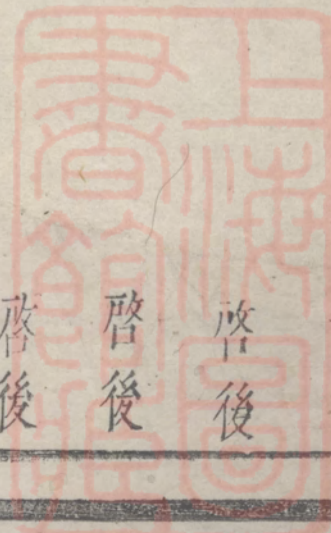 啓後
啓後
啓後
上海圖
書館藏